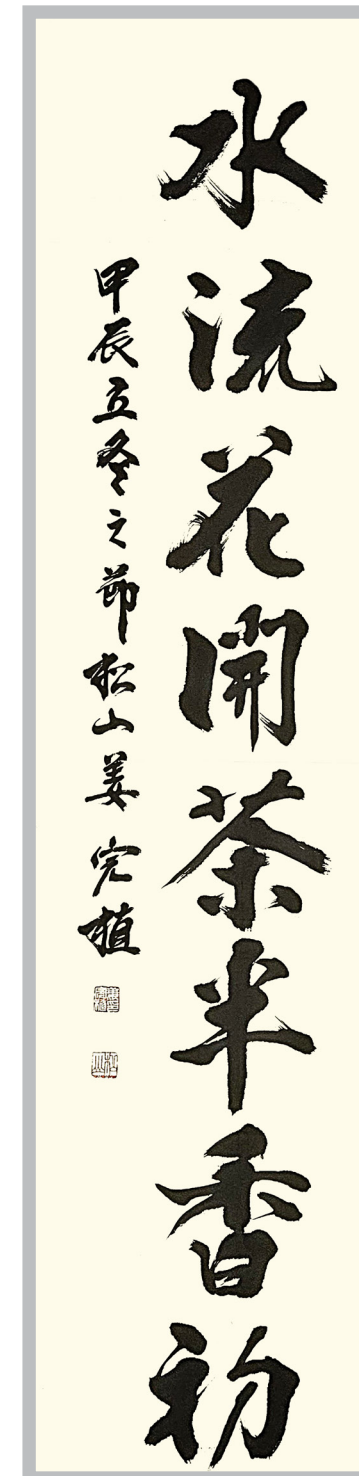 水流花開茶半香初
甲辰立冬之節松山姜完植